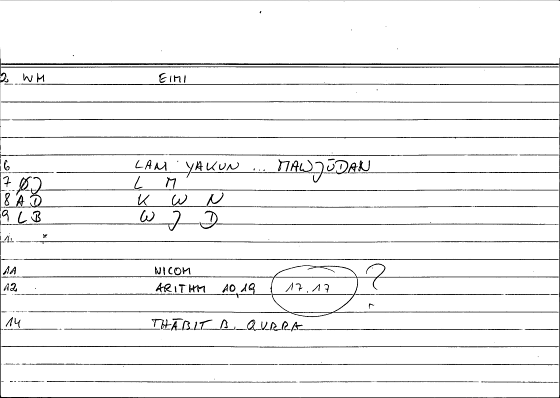 2 WM EIMI
6 LAM YAKUN ... MAWJŪDAN
7 ØJ L M
8 AD K W N
9 LB W J D
11 NICOM
12 ARITHM 10,19 17.17 ?
14 THĀBIT B. QURRA